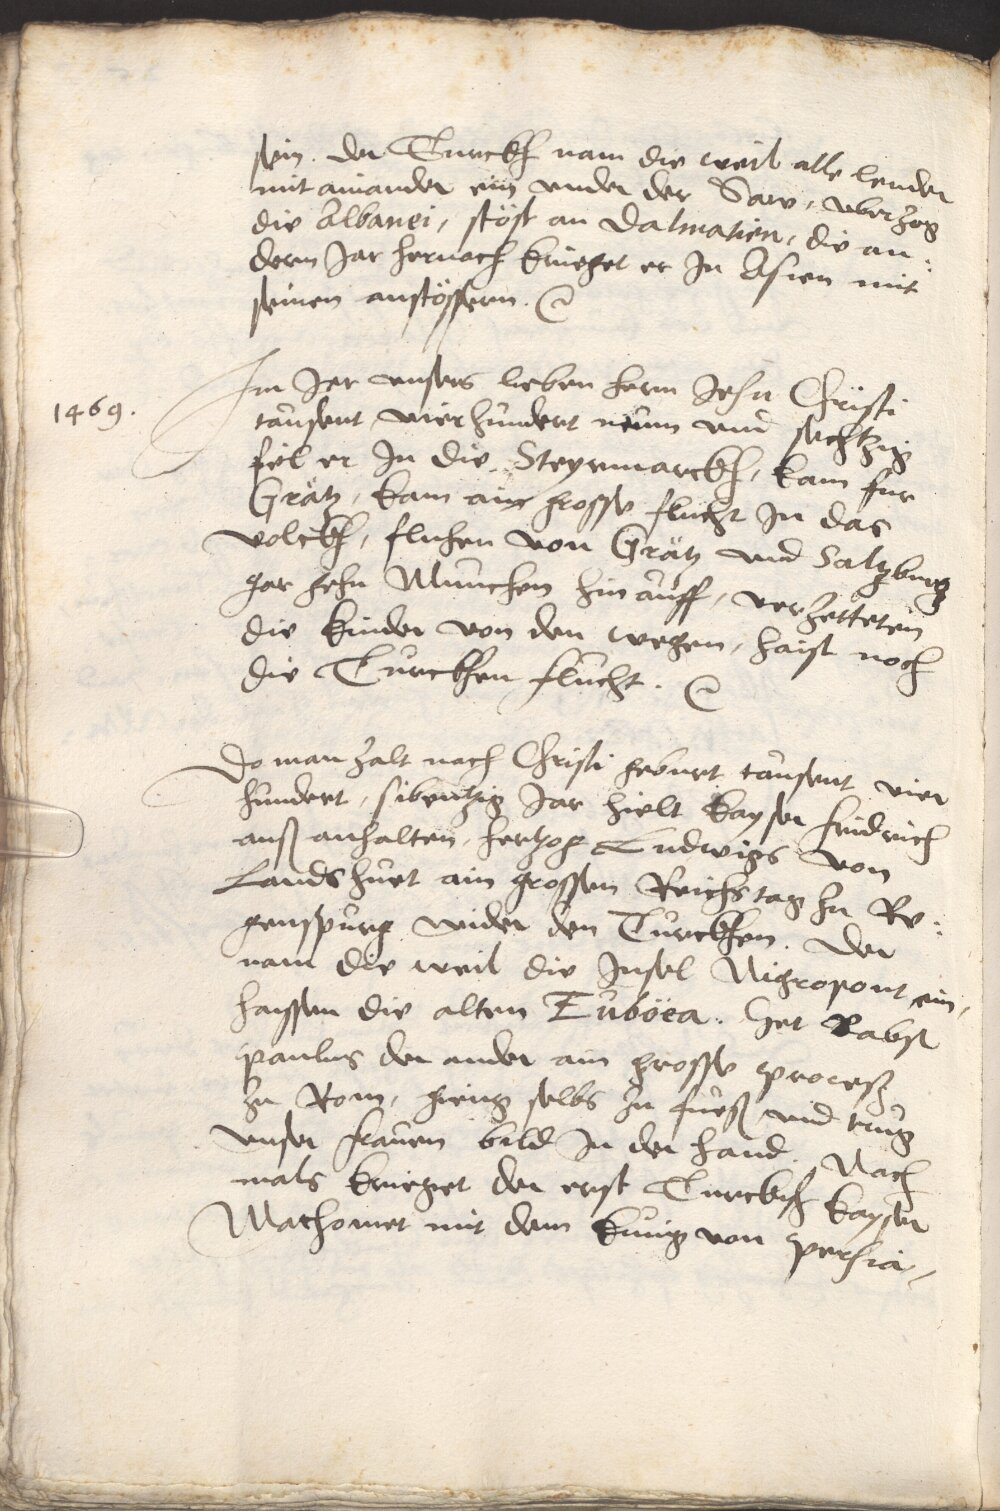 sein. der Turckh nam die weil alle lender
mit ainander ein vnder der Saw, vberzog
die Albanei, stöst an Dalmatien, die an:
dern Jar hernach krieget er In Asien mit
seinen anstössern.
1469.
Im Jar vnsers lieben herrn Jesu Christi
tausent vierhundert neun vnd sechtzig
fiel er In die Steyrmarckh, kam fur
Grätz, kam ain grosse flucht In das
volckh, fluhen von Grätz vnd Saltzburg
gar gehn Munchen hinauff, verzetteten
die kinder von den wegen, haist noch
die Turckhen flucht.
Do man zalt nach Christi geburt tausent vier
hundert, sibentzig Jar hielt kayser fridrich
auß anhalten hertzog Ludwigs von
Landshuet ain grossen Reichstag zu Re:
genspurg wider den Turckhen. Der
nam die weil die Insel Nigropont ein,
haissen die alten Euböea. Het Babst
paulus der ander ain grosse proceß
zu Rom, gieng selbs zu fueß vnd trug
vnser frauen bild In der hand. Nach
mals krieget der erst Turckisch kayser
Machomet mit dem kunig von persia,